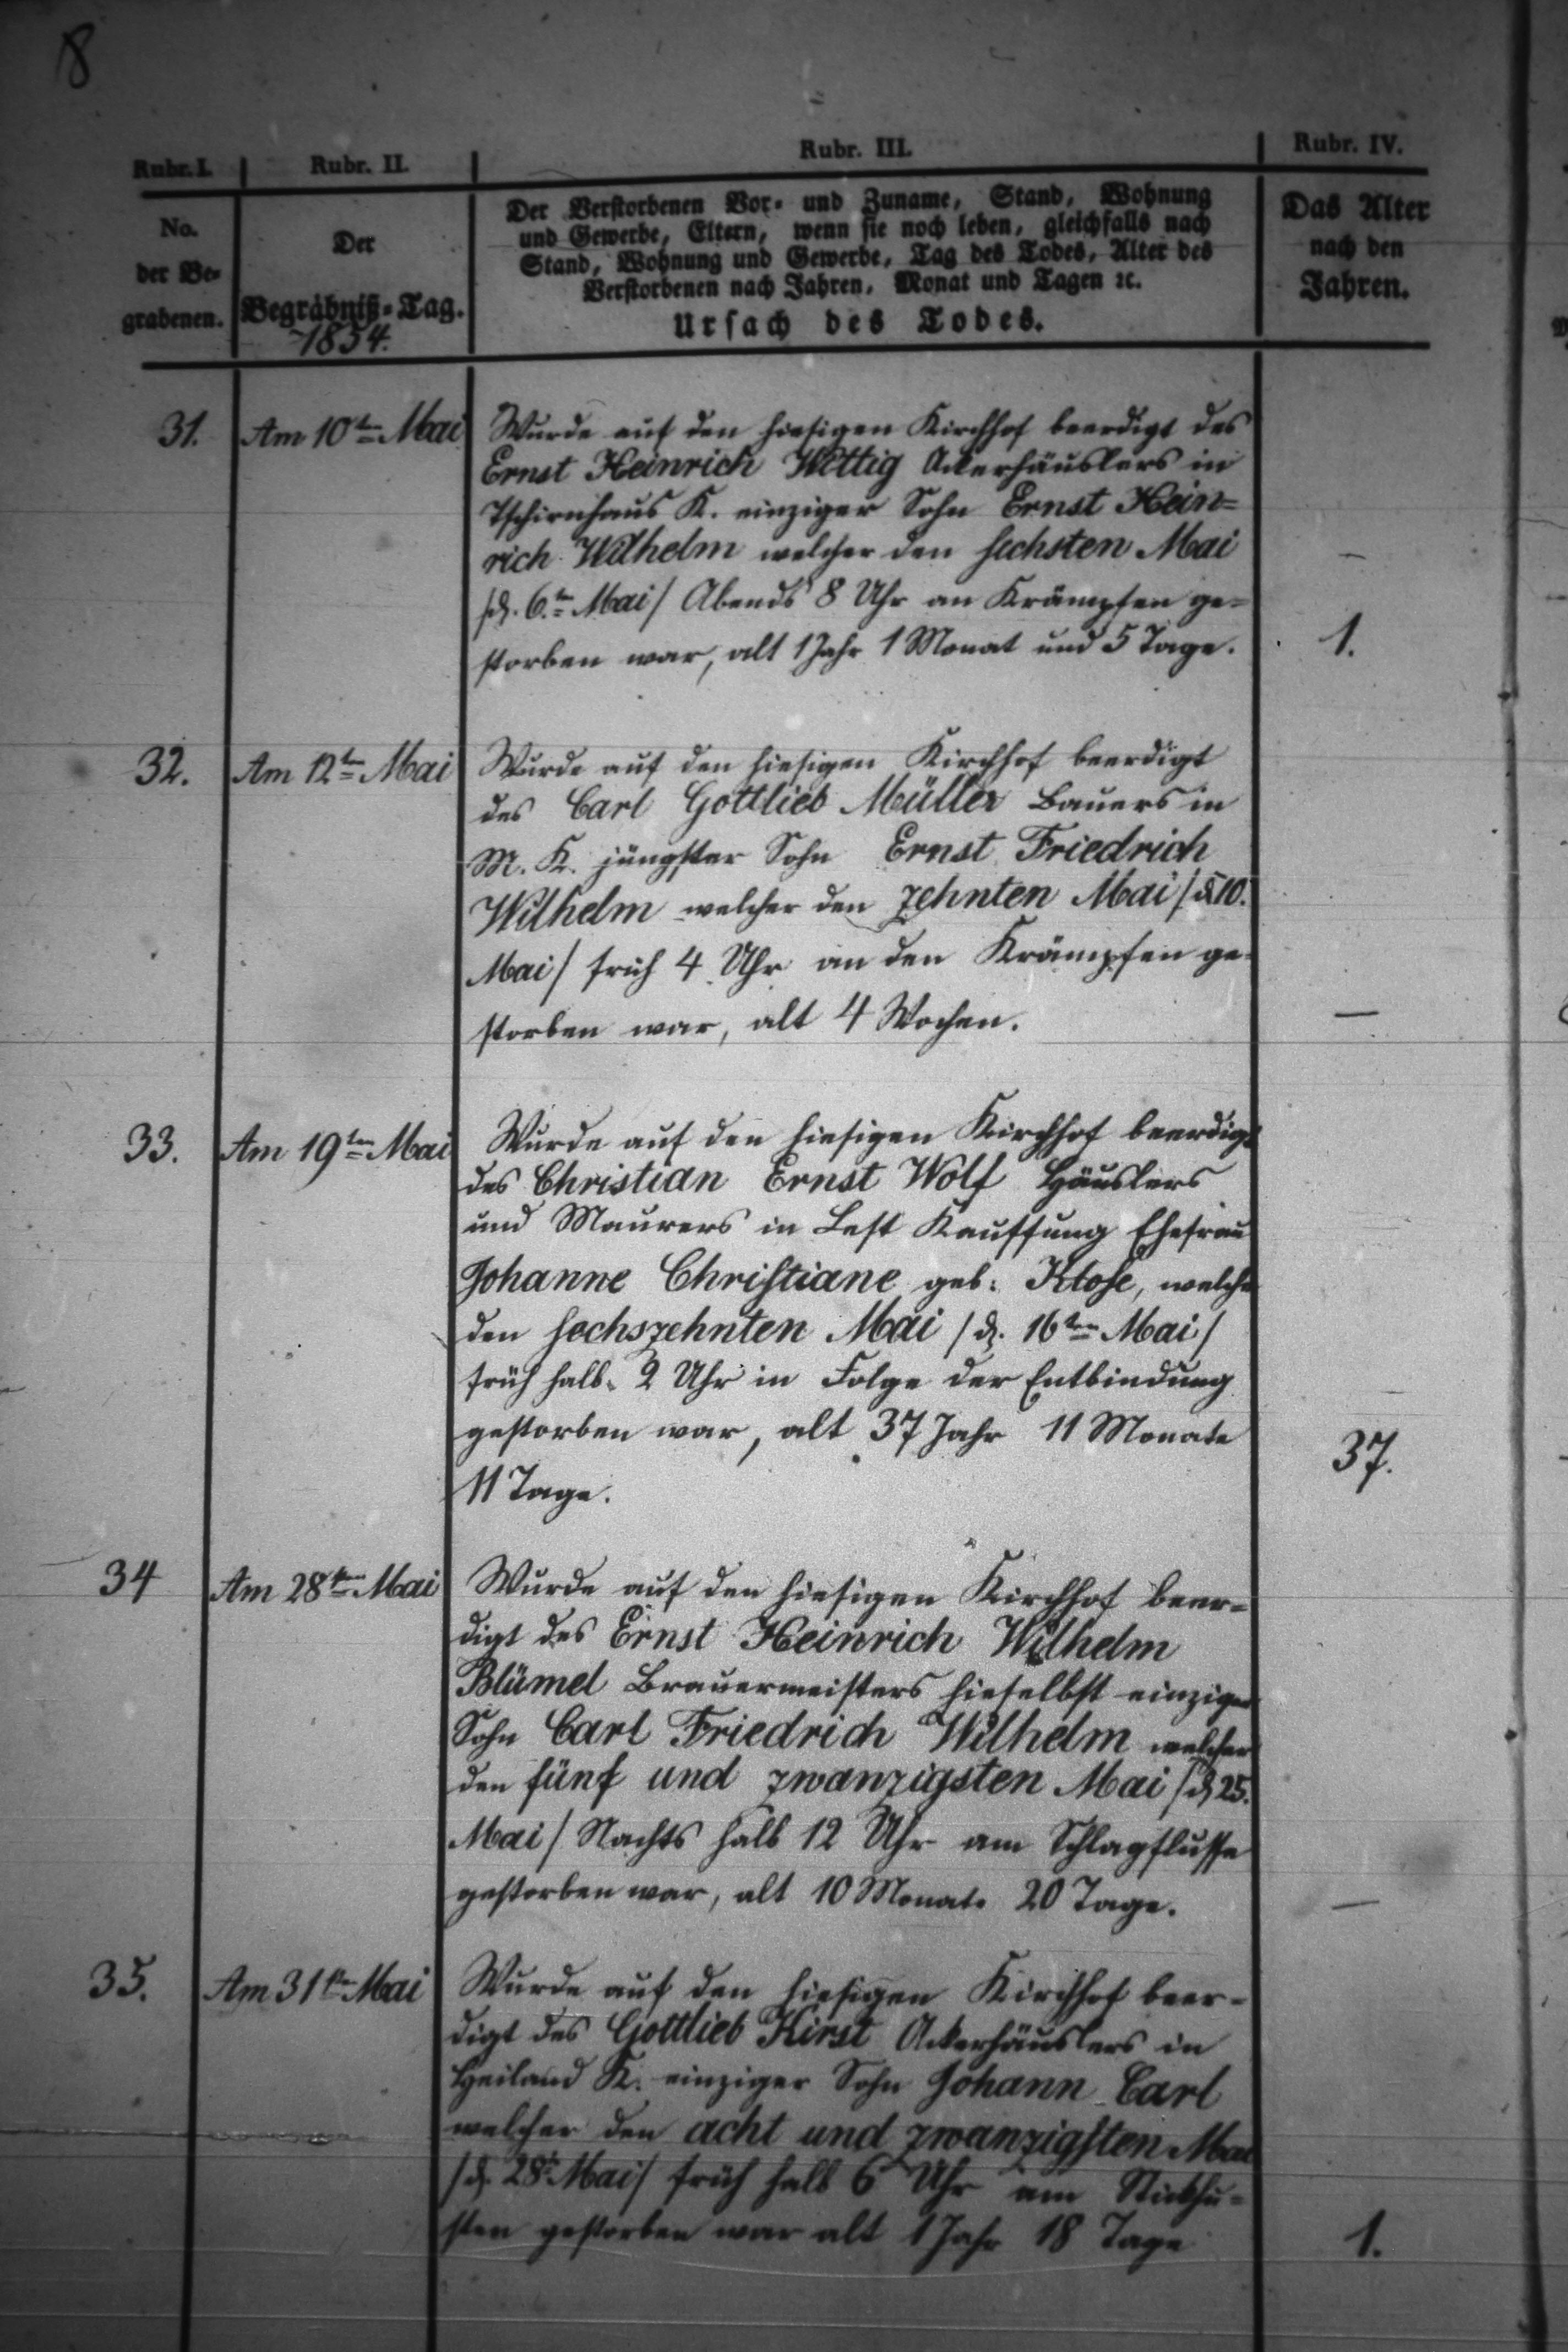 8
Rubr. I.
Rubr. II.
Rubr. III.
Rubr. IV.
No.
der Be-
grabenen.
Der
Begräbniß-Tag.
1854.
Der Verstorbenen Vor- und Zuname, Stand, Wohnung
und Gewerbe, Eltern, wenn sie noch leben, gleichfalls nach
Stand, Wohnung und Gewerbe, Tag des Todes, Alter des
Verstorbenen nach Jahren, Monat und Tagen ꝛc.
Ursach des Todes.
Das Alter
nach den
Jahren.
31.
Am 10ten Mai
Wurde auf den hiesigen Kirchhof beerdigt des
Ernst Heinrich Wittig Ackerhäuslers in
Tschirnhaus K. einziger Sohn Ernst Hein=
rich Wilhelm welcher den sechsten Mai
/d. 6.ten Mai/ Abends 8 Uhr an Krämpfen ge=
storben war, alt 1 Jahr 1 Monat und 5 Tage.
1.
32.
Am 12ten Mai
Wurde auf den hiesigen Kirchhof beerdigt
des Carl Gottlieb Müller Bauers in
M. K. jüngster Sohn Ernst Friedrich
Wilhelm welcher den zehnten Mai /d. 10.
Mai/ früh 4 Uhr an den Krämpfen ge-
storben war, alt 4 Wochen.
—
33.
Am 19ten Mai
Wurde auf den hiesigen Kirchhof beerdigt
des Christian Ernst Wolf Häuslers
und Maurers in Lest Kauffung Ehefrau
Johanne Christiane geb: Klose, welche
den sechszehnten Mai /d. 16ten Mai/
früh halb 2 Uhr in Folge der Entbindung
gestorben war, alt 37 Jahr 11 Monate
11 Tage.
37.
34
Am 28ten Mai
Wurde auf den hiesigen Kirchhof beer=
digt des Ernst Heinrich Wilhelm
Blümel Brauermeisters hieselbst einziger
Sohn Carl Friedrich Wilhelm welcher
den fünf und zwanzigsten Mai /d. 25.
Mai/ Nachts halb 12 Uhr am Schlagflusse
gestorben war, alt 10 Monate 20 Tage.
—
35.
Am 31ten Mai
Wurde auf den hiesigen Kirchhof beer=
digt des Gottlieb Kirst Ackerhäuslers in
Heiland K. einziger Sohn Johann Carl
welcher den acht und zwanzigsten Mai
/d. 28t Mai/ früh halb 6 Uhr am Stickhu=
sten gestorben war alt 1 Jahr 18 Tage
1.